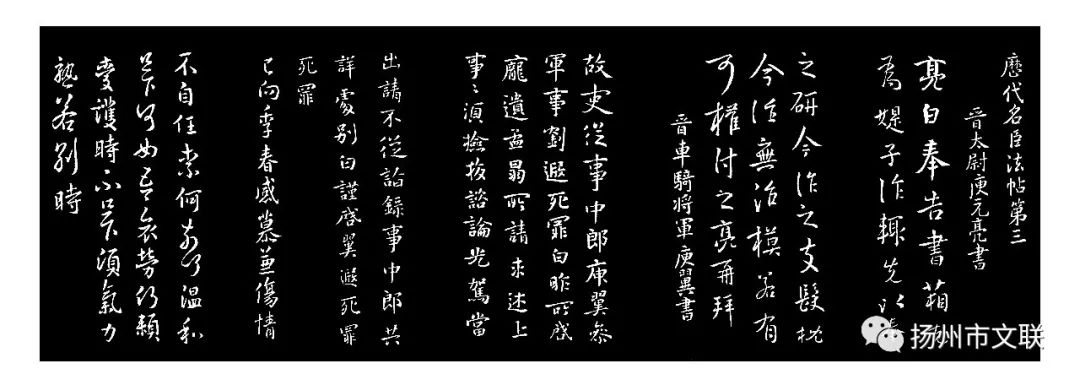 歷代名臣法帖第三
晉太尉庾元亮書
亮白奉告書箱
為媞子作輒先
之研今作之支髮枕
今治無治模若有
可權付之亮再拜
晉車騎将軍庾翼書
故吏從事中郎庾翼參
軍事劉遐死罪白昨所啓
龐遺孟暠所請未述上
事〻須撿按諮論光駕當
出請不從諭録事中郎共
詳處別白謹啓翼遐死罪
死罪
已向季春感慕兼傷情
不自任奈何奈何溫和
足下何如吾哀勞何賴
愛護時不足下須氣力
孰若别時
扬州市文联